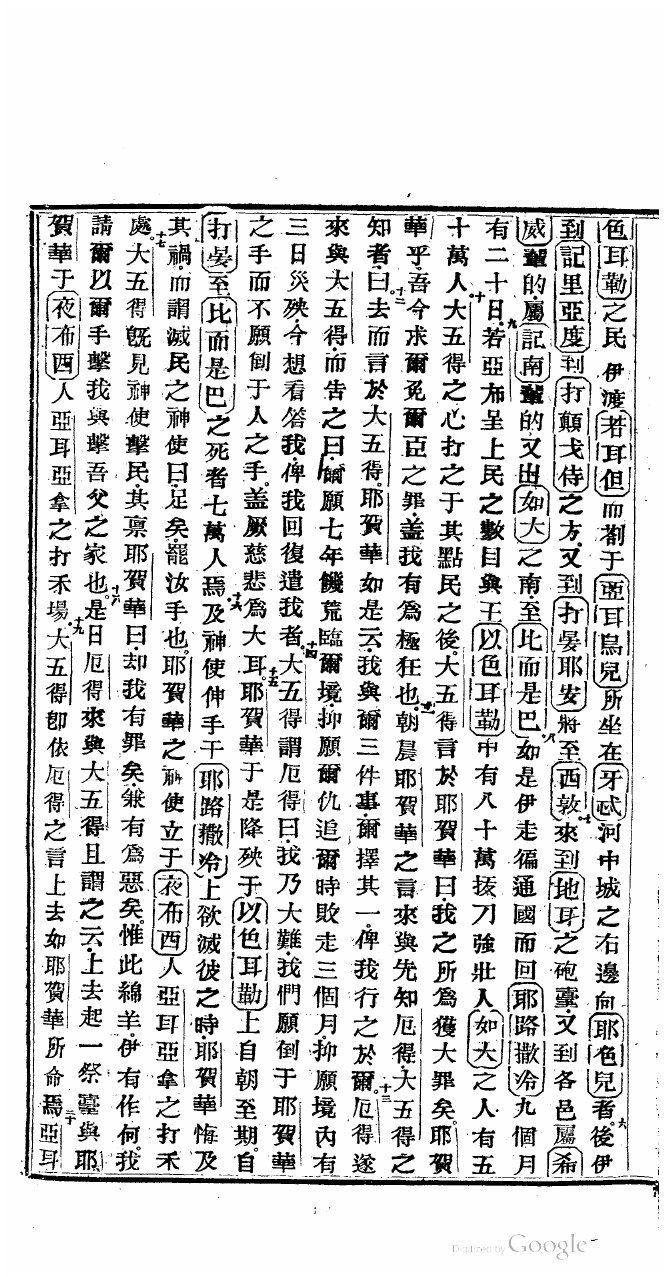 色耳勒之民伊渡若耳但而劄于亞耳烏兒所坐在牙忒河中城之右邊向耶色兒者後伊
到記里亞度到打顛戈侍之方又到打晏耶安將至西敦來到地耳之砲臺又到各邑屬希
威輩的屬記南輩的又出如大之南至比而是巴如是伊走徧通國而回耶路撒冷九個月
有二十日若亞布呈上民之數目與王以色耳勒中有八十萬㧞刀強壯人如大之人有五
十萬人大五得之心打之于其點民之後大五得言於耶賀華曰我之所為獲大罪矣耶賀
華乎吾今求爾免爾臣之罪葢我有為極狂也朝晨耶賀華之言來與先知厄得大五得之
知者曰去而言於大五得耶賀華如是云我與爾三件事爾擇其一俾我行之於爾厄得遂
來與大五得而告之曰爾願七年饑荒臨爾境抑願爾仇追爾時敗走三個月抑願境內有
三日災殃今想看答我俾我回復遣我者大五得謂厄得曰我乃大難我們願倒于耶賀華
之手而不願倒于人之手葢厥慈悲為大耳耶賀華于是降殃于以色耳勒上自朝至期自
打晏至比而是巴之死者七萬人焉及神使伸手于耶路撒冷上欲滅彼之時耶賀華悔及
其禍而謂滅民之神使曰足矣罷汝手也耶賀華之神使立于夜布西人亞耳亞拿之打禾
處大五得旣見神使擊民其禀耶賀華曰却我有罪矣兼有為惡矣惟此綿羊伊有作何我
請爾以爾手擊我與擊吾父之家也是日厄得來與大五得且謂之云上去起一祭臺與耶
賀華于夜布西人亞耳亞拿之打禾場大五得卽依厄得之言上去如耶賀華所命焉亞耳
Digitized by Google